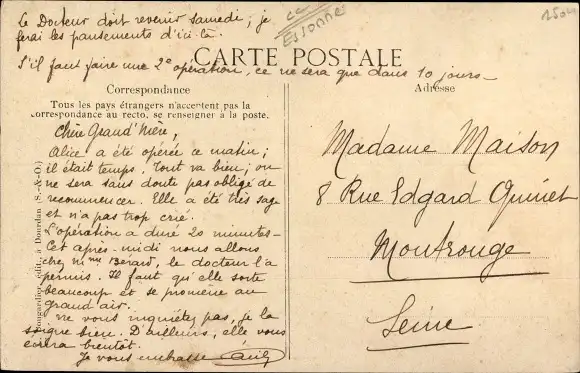 Le Docteur doit revenir samedi; je
ferai les pansements d'ici-là.
ESSONNE
CARTE POSTALE
S'il faut faire une 2e opération, ce ne sera que dans 10 jours-
Correspondance
Tous les pays étrangers n'acceptent pas la
correspondance au recto, se renseigner à la poste.
Chère Grand'Mère,
Alice a été opérée ce matin;
il était temps. Tout va bien; on
ne sera sans doute pas obligé de
recommencer. Elle a été très sage
et n'a pas trop crié.
L'opération a duré 20 minutes-
Cet après-midi nous allons
chez Mme Bérard, le docteur l'a
permis. Il faut qu'elle sorte
beaucoup et se promène au
grand air.
ne vous inquiétez pas, je la
soigne bien. D'ailleurs, elle vous
écrira bientôt.
Je vous embrasse
édit., à Dourdan (S.-&-O.)
Adresse
Madame Maison
8 Rue Edgard Quinet
Montrouge
Seine